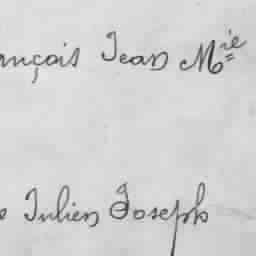 ançois Jean Mie
Julien Joseph